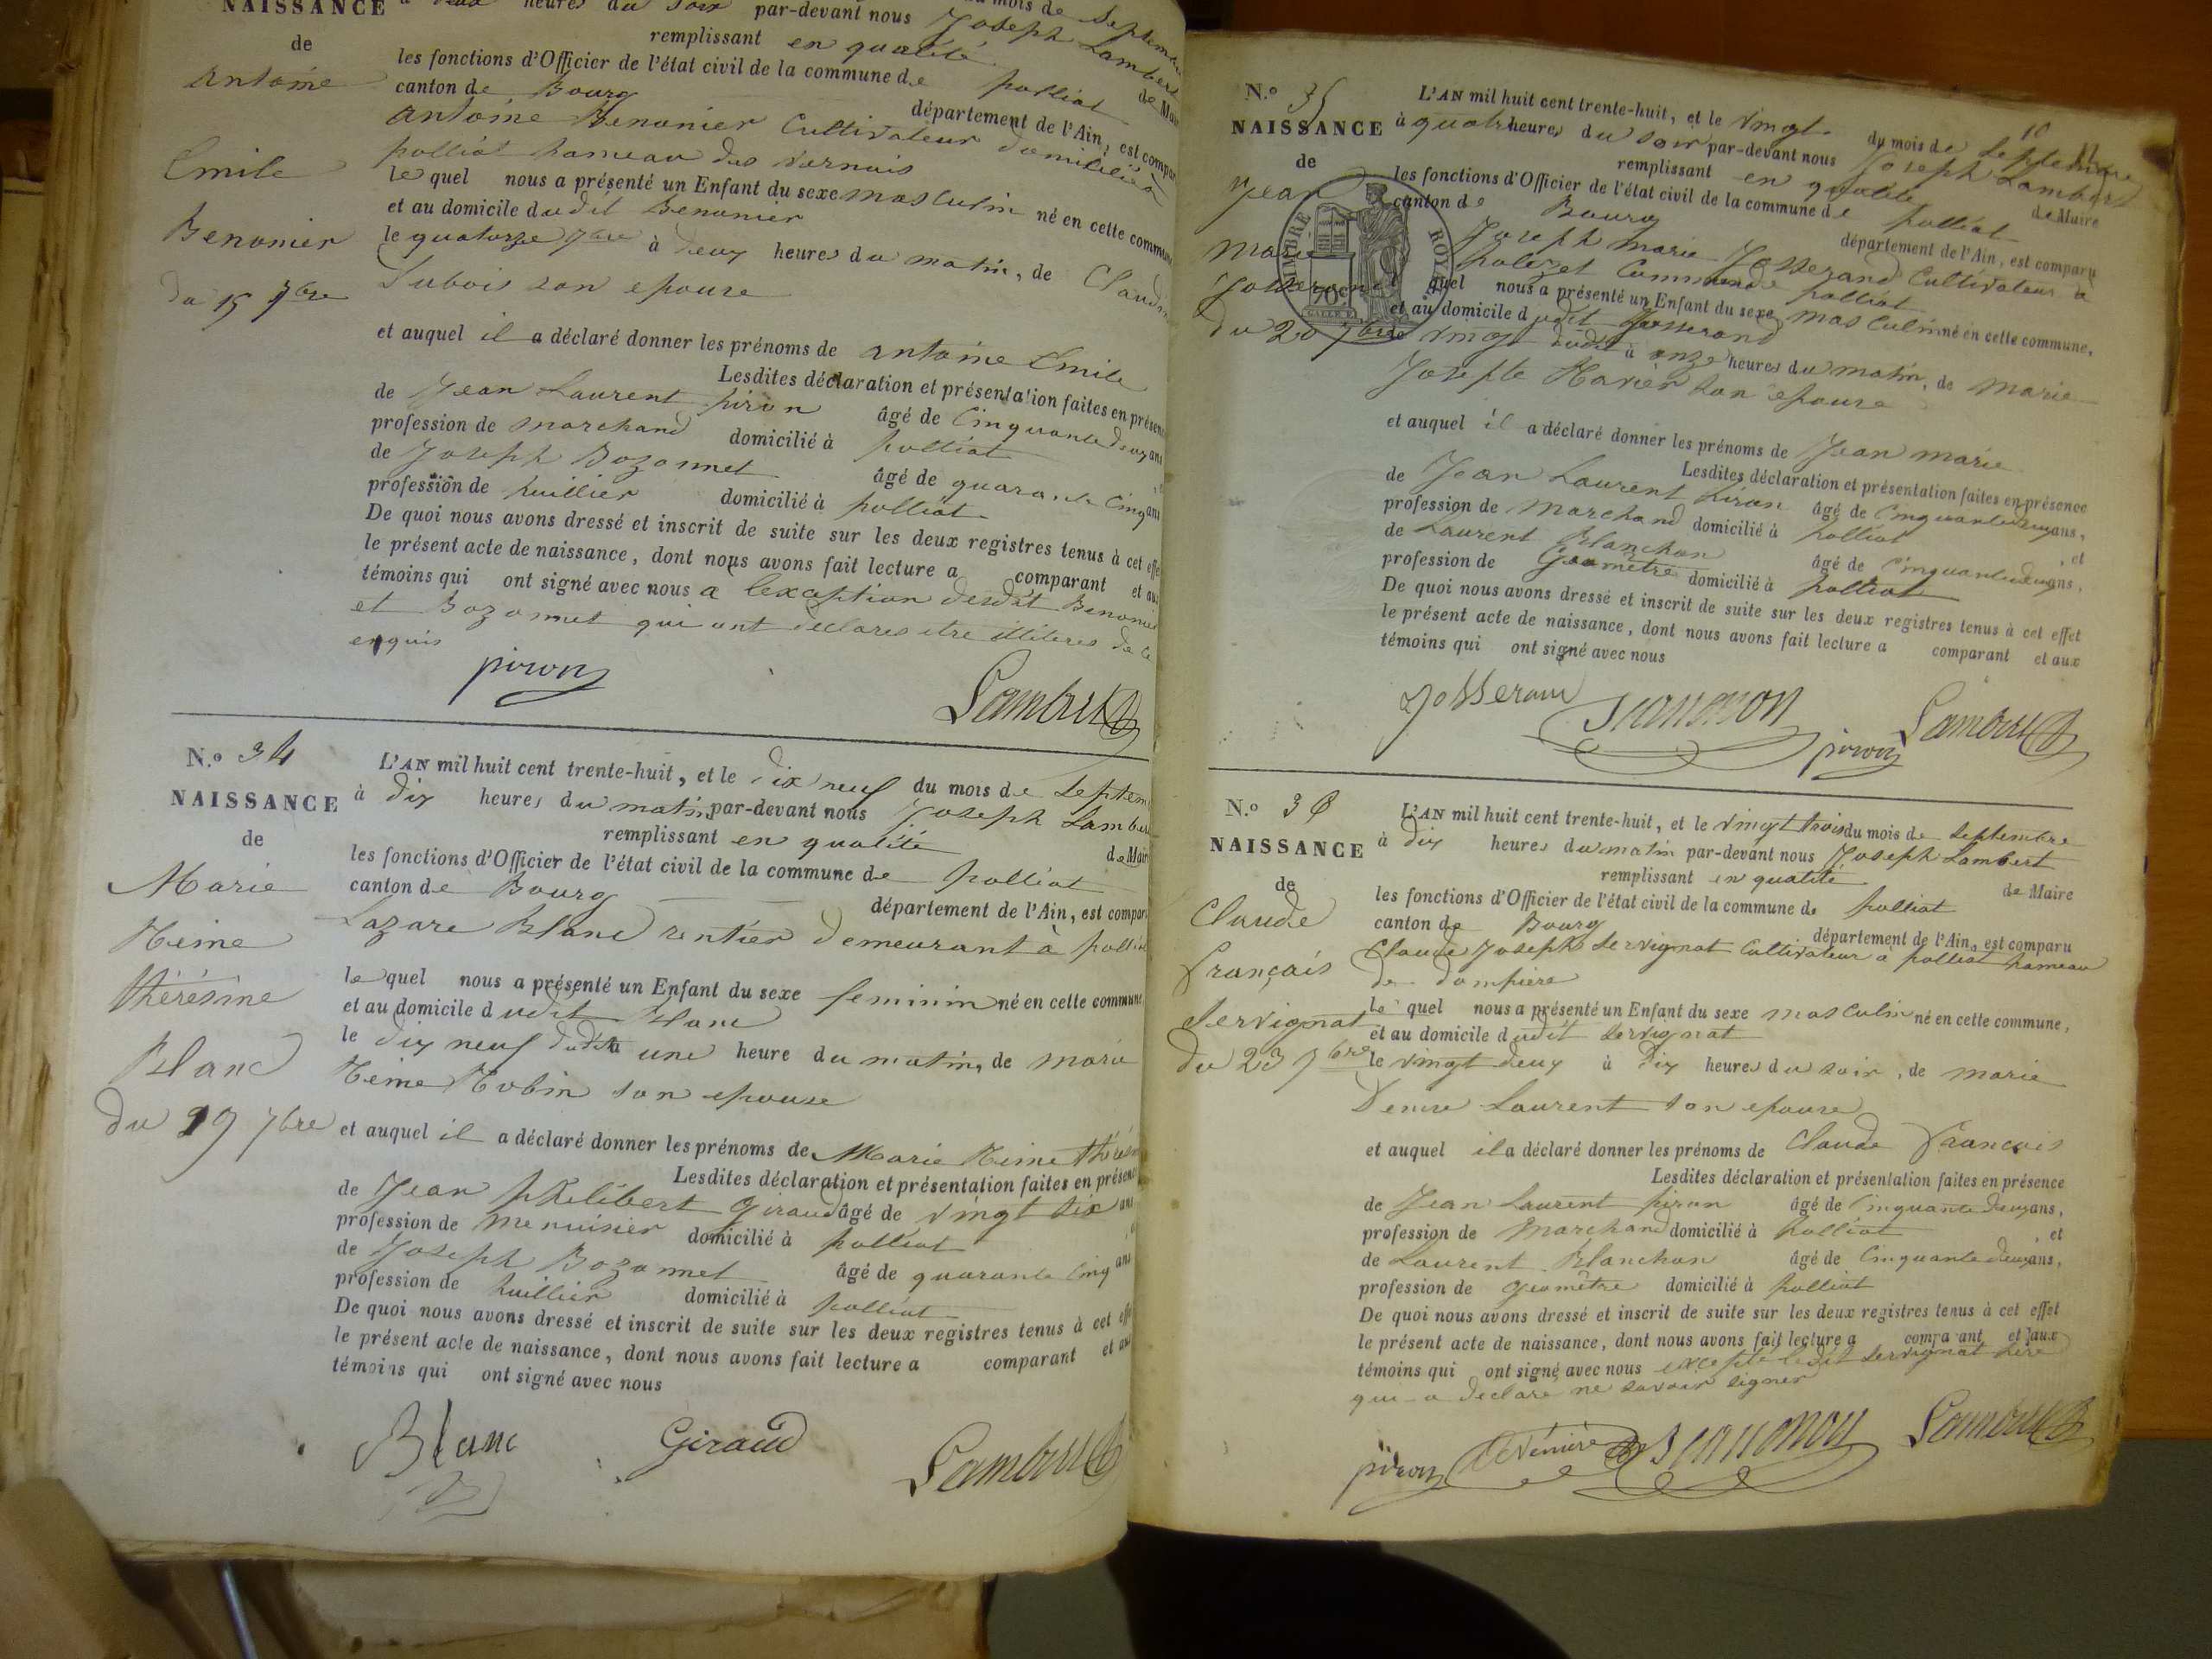 NAISSANCE
de
antoine
Emile
Benonier
du 15 7bre
à deux heures du soir par-devant nous Joseph Lambert
remplissant en qualité de Mai
les fonctions d'Officier de l'état civil de la commune de polliat
canton de Bourg département de l'Ain, est compar
antoine Benonier Cultivateur domicilié à
polliat hameau des vernais
le quel nous a présenté un Enfant du sexe masculin né en cette commune
et au domicile dudit Benonier
le quatorze 7bre à deux heures du matin, de Claudine
Dubois son epouse
et auquel il a déclaré donner les prénoms de antoine Emile
Lesdites déclaration et présentation faites en présen
de Jean Laurent piron âgé de Cinquante deux ans
profession de marchand domicilié à polliat
de Joseph Bozonnet âgé de quarante Cinq ans
profession de huillier domicilié à polliat
De quoi nous avons dressé et inscrit de suite sur les deux registres tenus à cet effe
le présent acte de naissance, dont nous avons fait lecture a comparant et aux
témoins qui ont signé avec nous a lexception desdit Benonier
et Bozonnet qui ont déclarés etre illiteres de ce
enquis
piron
Lambert
N.º 34
NAISSANCE
de
Marie
Reine
thérésine
Blanc
du 19 7bre
L'AN mil huit cent trente-huit, et le dix neuf du mois de Septem
à dix heures du matin par-devant nous Joseph Lamber
remplissant en qualité de Mair
les fonctions d'Officier de l'état civil de la commune de polliat
canton de Bourg département de l'Ain, est compar
Lazare Blanc rentier demeurant à polliat
le quel nous a présenté un Enfant du sexe feminin né en cette commune
et au domicile dudit Blanc
le dix neuf dudit à une heure du matin, de marie
Reine Robin son epouse
et auquel il a déclaré donner les prénoms de Marie Reine thérésin
Lesdites déclaration et présentation faites en présence
de Jean philibert Giraud âgé de vingt six ans
profession de menuisier domicilié à polliat
de Joseph Bozonnet âgé de quarante Cinq ans
profession de huillier domicilié à polliat
De quoi nous avons dressé et inscrit de suite sur les deux registres tenus à cet effe
le présent acte de naissance, dont nous avons fait lecture a comparant et aux
témoins qui ont signé avec nous
Blanc Giraud Lambert
N.º 35
NAISSANCE
de
Jean
Marie
Josserand
du 20 7bre
TIMBRE ROYAL
70c
L'AN mil huit cent trente-huit, et le vingt du mois de Septembre
à quatre heures du soir par-devant nous Joseph Lambert
remplissant en qualité de Maire
les fonctions d'Officier de l'état civil de la commune de polliat
canton de Bourg département de l'Ain, est comparu
Joseph marie Josserand Cultivateur à
Commune de polliat
quel nous a présenté un Enfant du sexe masculin né en cette commune,
et au domicile dudit Josserand
vingt dudit à onze heures du matin, de marie
Josephte son epouse
et auquel il a déclaré donner les prénoms de Jean marie
Lesdites déclaration et présentation faites en présence
de Jean Laurent piron âgé de Cinquante deux ans,
profession de marchand domicilié à polliat et
de Laurent Blanchon âgé de Cinquante deux ans,
profession de Géomètre domicilié à polliat
De quoi nous avons dressé et inscrit de suite sur les deux registres tenus à cet effet
le présent acte de naissance, dont nous avons fait lecture a comparant et aux
témoins qui ont signé avec nous
Josserand
piron
Lambert
N.º 36
NAISSANCE
de
Claude
français
Servignat
du 23 7bre
L'AN mil huit cent trente-huit, et le vingt trois du mois de Septembre
à dix heures du matin par-devant nous Joseph Lambert
remplissant en qualité de Maire
les fonctions d'Officier de l'état civil de la commune de polliat
canton de Bourg département de l'Ain, est comparu
Claude Joseph Servignat Cultivateur à polliat hameau
de dompiere
le quel nous a présenté un Enfant du sexe masculin né en cette commune,
et au domicile dudit Servignat
le vingt deux à dix heures du soir, de marie
Denise Laurent son epouse
et auquel il a déclaré donner les prénoms de Claude francois
Lesdites déclaration et présentation faites en présence
de Jean Laurent piron âgé de Cinquante deux ans,
profession de marchand domicilié à polliat et
de Laurent Blanchon âgé de Cinquante deux ans,
profession de géomètre domicilié à polliat
De quoi nous avons dressé et inscrit de suite sur les deux registres tenus à cet effet
le présent acte de naissance, dont nous avons fait lecture a comparant et aux
témoins qui ont signé avec nous excepté ledit Servignat père
qui a déclaré ne savoir signer
piron Lambert